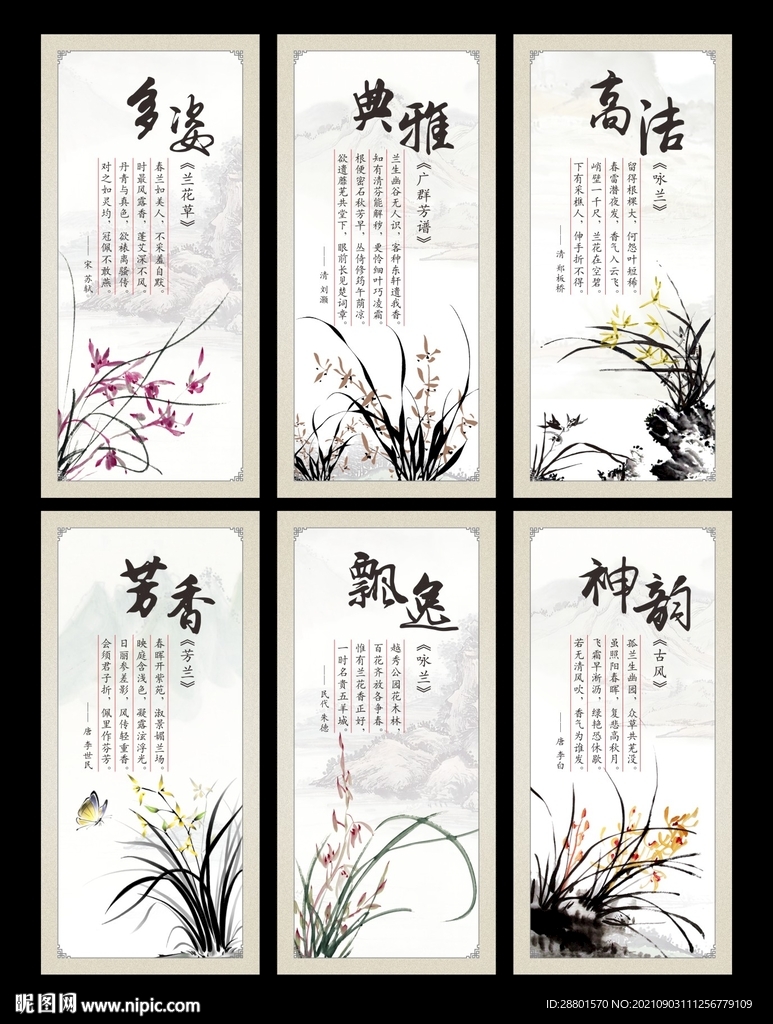 多姿
《兰花草》
春兰如美人，不采羞自献。
时最风露香，蓬艾深不风。
丹青与真色，欲裱离骚传
对之如灵均，冠佩不敢燕。
——宋 苏轼
典雅
《广群芳谱》
兰生幽谷无人识，客种东轩遗我香。
知有清芬能解秽，更怜细叶巧凌霜。
根便密石秋芳早，丛倚修筠午荫凉。
欲遗蘼芜共堂下，眼前长见楚词章。
——清 刘灏
高洁
《咏兰》
留得根棵大，何怨叶短稀。
春雷潜夜发，香气入云飞。
峭壁一千尺，兰花在空碧。
下有采樵人，伸手折不得。
——清 郑板桥
芳香
《芳兰》
春晖开紫苑，淑景媚兰场。
映庭含浅色，凝露泫浮光。
日丽参差影，风传轻重香。
会须君子折，佩里作芬芳。
——唐 李世民
飘逸
《咏兰》
越秀公园花木林，
百花齐放各争春。
惟有兰花香正好，
一时名贵五羊城。
——民代 朱德
神韵
《古风》
孤兰生幽园，众草共芜没。
虽照阳春晖，复悲高秋月。
飞霜早淅沥，绿艳恐休歇。
若无清风吹，香气为谁发。
——唐 李白
昵图网 www.nipic.com
ID:28801570 NO:20210903111256779109